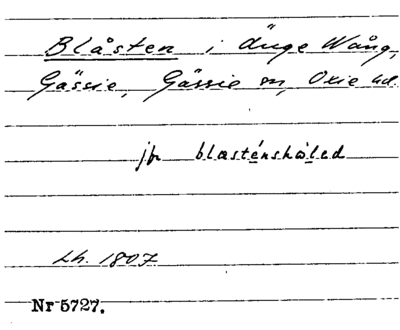 Blåsten i Änge Wång,
Gässie, Gässie sn, Oxie hd.
jfr blasténshàled
Lh. 1807
Nr 5727.